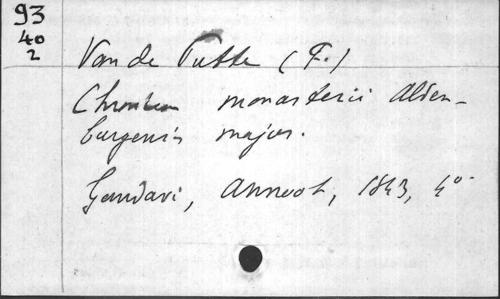 93
40
2
Van de Putte (F.)
Chronicon monasterii Alden-
burgensis majus.
Gandavi, Annoot, 1843, 4°